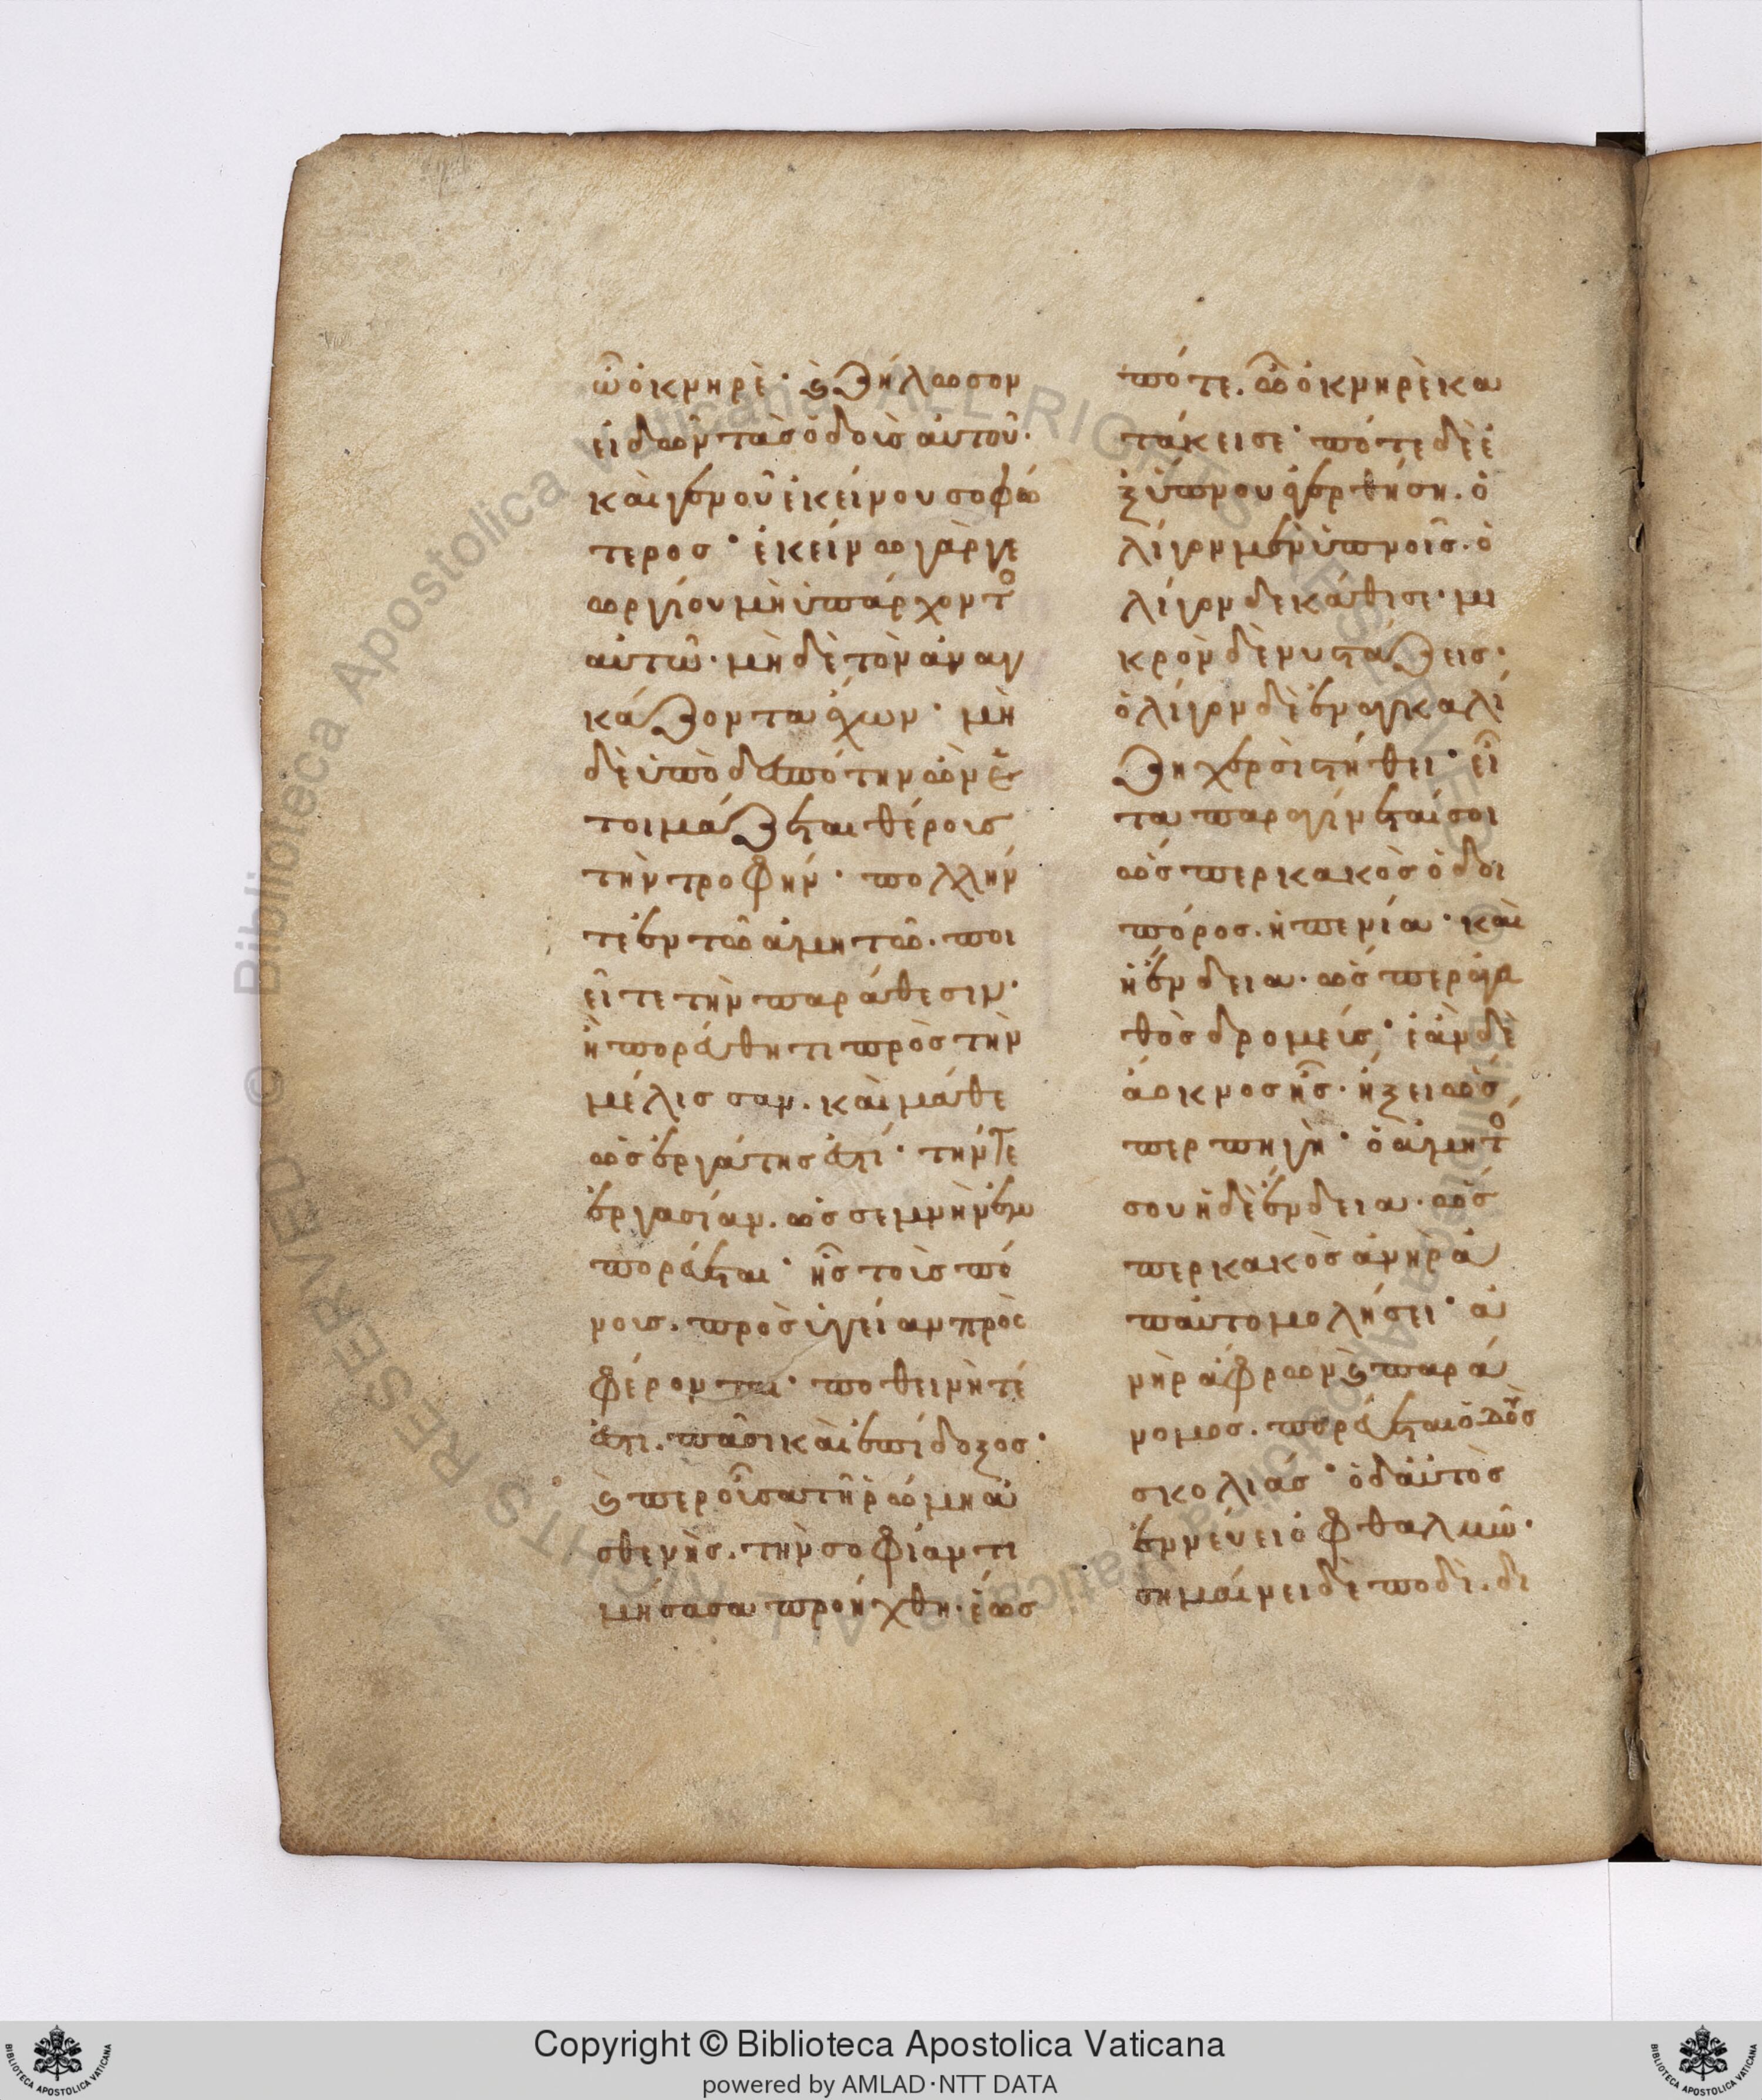 ὦ ὀκνηρὲ· ϗ ζήλωσον
εἰδὼν τὰς ὁδοὺς αὐτοῦ·
καὶ γενοῦ ἐκείνου σοφώ
τερος· ἐκείνω γὰρ γε
ωργίου μὴ ὑπάρχοντο
αὐτῶ· μὴ δὲ τὸν ἀναγ
κάζοντα ἔχων· μὴ
δὲ ὑπὸ δεσπότην ὢν ἑ
τοιμάζεται θέρους
τὴν τροφήν· πολλήν
τε ἐν τῶ ἀμητῶ· ποι
εῖτε τὴν παράθεσιν·
ἢ πορεύθητι πρὸς τὴν
μέλισσαν· καὶ μάθε
ὡς ἐργάτης ἐστί· τήν τε
ἐργασίαν· ὡς σεμνὴν ἐμ
πορεύεται· ἧς τοὺς πό
νους· πρὸς ὑγείαν προς
φέρονται· ποθεινή τέ
ἐστι· πᾶσι καὶ ἐπίδοξος·
ϗ περ οὖσα τῆ ῥώμη ἀ
σθενὴς· τὴν σοφίαν τι
μήσασα προήχθη· ἕως
πότε· ὦ ὀκνηρὲ κα
τάκεισε· πότε δὲ ἐ
ξ ὕπνου ἐγερθήση· ὀ
λίγον μὲν ὑπνοῖς· ὀ
λίγον δε κάθισε· μι
κρὸν δὲ νυστάζεις·
ὀλίγον δὲ ἐναγκαλί
ζη χερσὶ στήθει· εἶ
τα παραγίνεταί σοι
ὥσπερ κακὸς ὁδοι
πόρος· ἡ πενία· καὶ
ἡ ἔνδεια· ὥσπερ ἀγα
θὸς δρομεύς· ἐὰν δὲ
ἄοκνος ῆς· ἥξει ὥσ
περ πηγὴ· ὁ ἀμητό
σου ἡ δὲ ἔνδεια· ὥσ
περ κακὸς ἀνὴρ ἀ
παυτομολήσει· ἀ
νὴρ ἄφρων ϗ παρά
νομος· πορεύεται ὁδοὺς
σκολιάς· ὁ δαὐτὸς
ἐννεύει ὀφθαλμῶ·
σημαίνει δὲ ποδὶ· δι
Copyright © Biblioteca Apostolica Vaticana
powered by AMLAD·NTT DATA